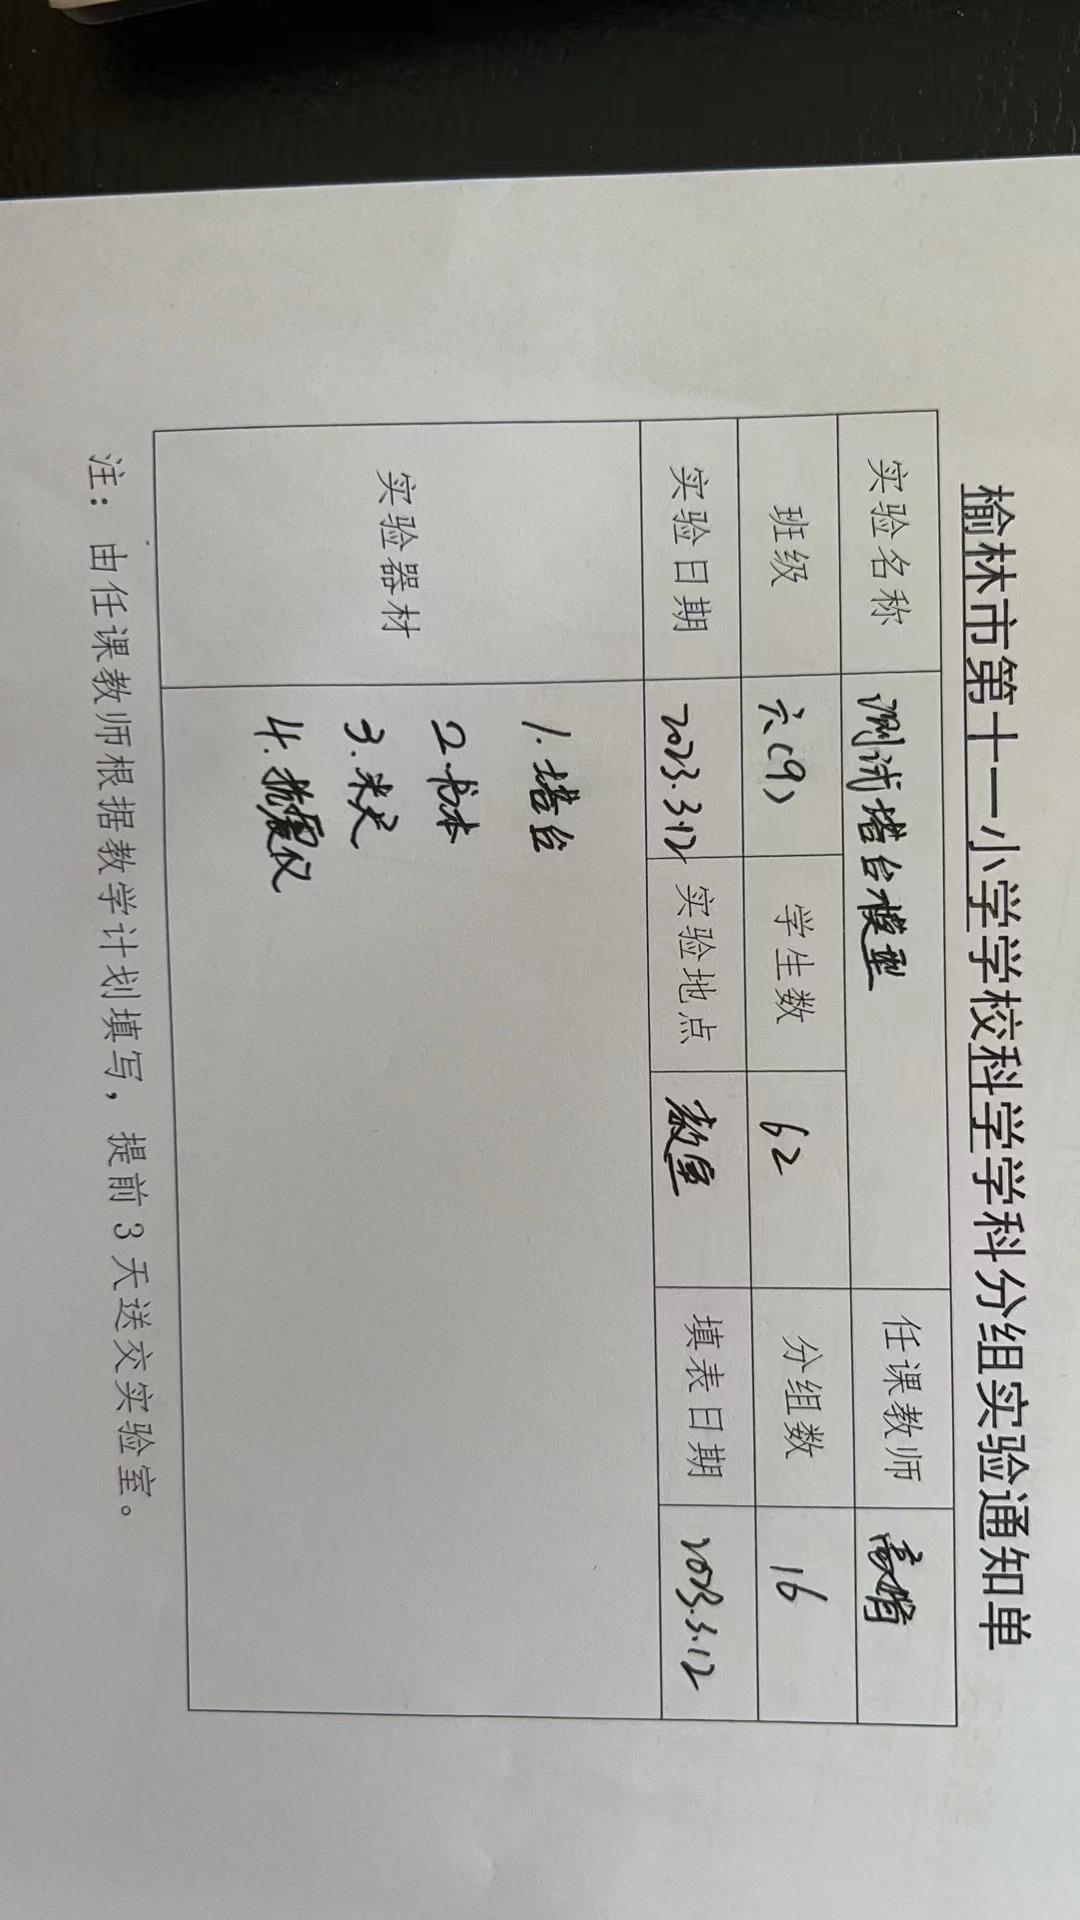 榆林市第十一小学学校科学学科分组实验通知单
实验名称 测试塔台模型 任课教师
班级 六(9) 学生数 62 分组数 16
实验日期 2023.3.12 实验地点 教室 填表日期 2023.3.12
实验器材
1.塔台
2.书本
3.米尺
4.抗震仪
注：由任课教师根据教学计划填写，提前3天送交实验室。